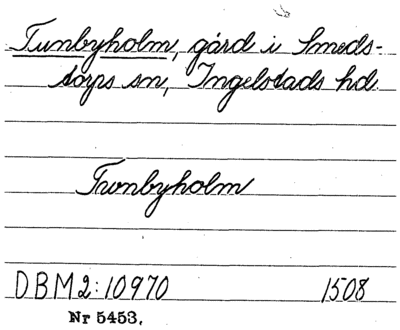 Tunbyholm, gård i Smeds-
torps sn, Ingelstads hd.
Twnbyholm
DBM 2:10970 1508
Nr 5453.